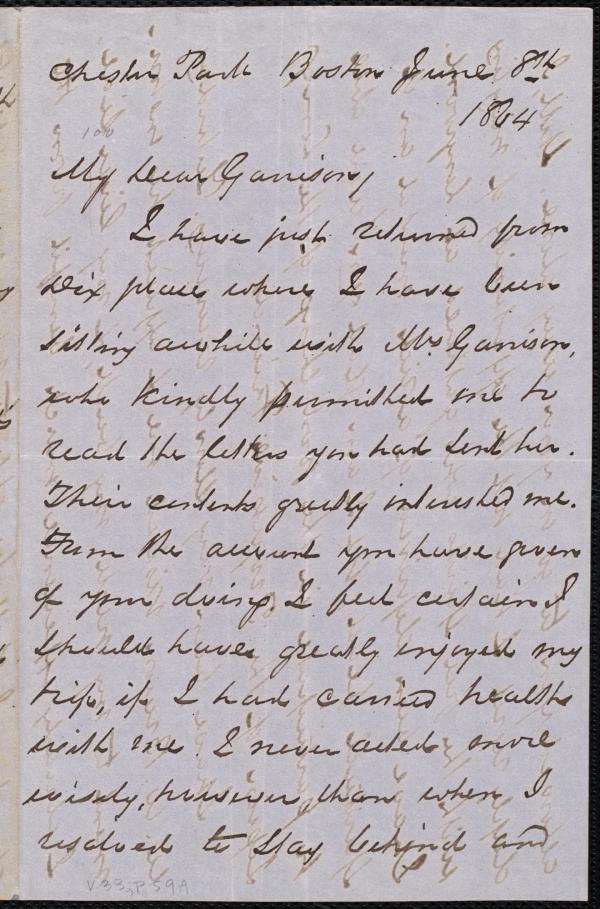 Chester Park Boston June 8th
1864
100
My Dear Garrison,
I have just returned from
Dix place where I have been
sitting awhile with Mrs Garrison,
who kindly permitted me to
read the letters you had sent her.
Their contents greatly interested me.
From the account you have given
of your doings, I feel certain I
should have greatly enjoyed my
trip, if I had carried health
with me. I never acted more
wisely, however, than when I
resolved to stay behind and
V 33, P. 59A